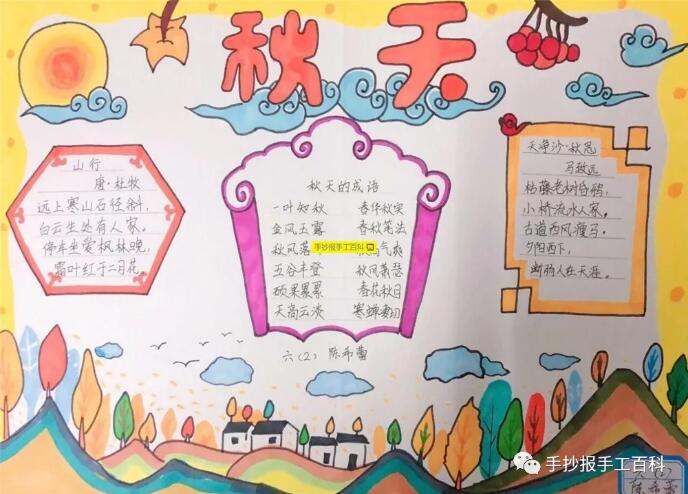 秋天
山行
唐·杜牧
远上寒山石径斜,
白云生处有人家。
停车坐爱枫林晚,
霜叶红于二月花。
秋天的成语
一叶知秋 春华秋实
金风玉露 春秋笔法
秋风落 高气爽
手抄报手工百科
五谷丰登 秋风萧瑟
硕果累累 春花秋日
天高云淡 寒蝉凄切
六(2) 陈希蕾
天净沙·秋思
马致远
枯藤老树昏鸦,
小桥流水人家。
古道西风瘦马。
夕阳西下,
断肠人在天涯。
手抄报手工百科
陈希